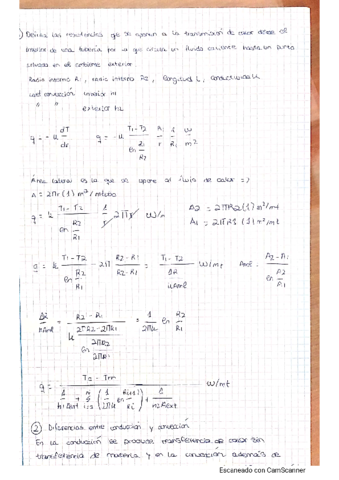 1) Definir las resistencias que se oponen a la transmisión de calor desde el
interior de una tubería por la que circula un fluido caliente hasta un punto
situado en el ambiente exterior.
Radio interno R1, radio interno R2, longitud L, conductividad k
coef convección interior h1
" " exterior h2
q = -k dT/dr q = -k (T1-T2)/(ln R2/R1) R1/r 1/R1 W/m²
Área lateral es la que se opone al flujo de calor =)
A = 2πr(1) m²/mlado
q = k (T1-T2)/(ln R2/R1) 1/r 2πr W/m
A2 = 2πR2(1) m²/mt
A1 = 2πR1(1) m²/mt
q = k (T1-T2)/(ln R2/R1) · 2π (R2-R1)/(R2-R1) = (T1-T2)/(ΔR/kAml) W/mt, Aml = (A2-A1)/(ln A2/A1)
ΔR/kAml = (R2-R1)/(k (2πR2-2πR1)/(ln 2πR2/2πR1)) = 1/2πk ln R2/R1
W/mt
2) Diferencias entre conducción y convección
En la conducción se produce transferencia de calor sin
transferencia de materia y en la convección además de
Escaneado con CamScanner